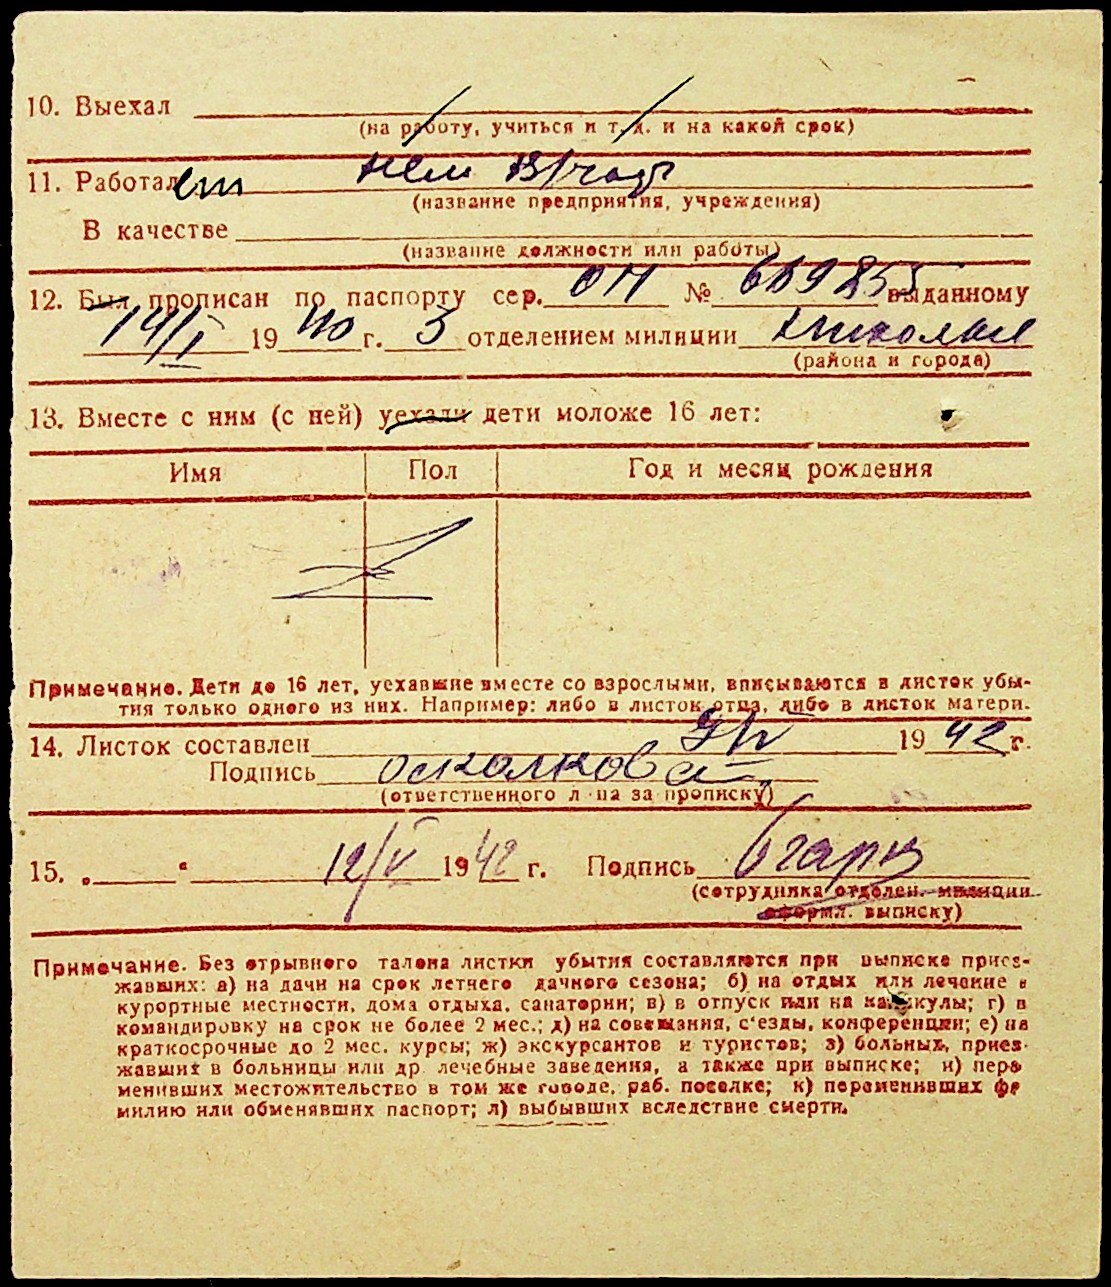 10. Выехал
(на работу, учиться и т. д. и на какой срок)
11. Работал ет нем
(название предприятия, учреждения)
В качестве
(название должности или работы)
12. Был прописан по паспорту сер. ОМ № 669855 выданному
14/I 1940 г. 3 отделением милиции
(района и города)
13. Вместе с ним (с ней) уехали дети моложе 16 лет:
Имя Пол Год и месяц рождения
Примечание. Дети до 16 лет, уехавшие вместе со взрослыми, вписываются в листок убы-
тия только одного из них. Например: либо в листок отца, либо в листок матери.
14. Листок составлен 9/V 1942 г.
Подпись Осколкова
(ответственного л па за прописку)
15. „ “ 12/V 1942 г. Подпись
(сотрудника отделен. милиции
оформл. выписку)
Примечание. Без отрывного талона листки убытия составляются при выписке приез-
жавших: а) на дачи на срок летнего дачного сезона; б) на отдых или лечение в
курортные местности, дома отдыха, санатории; в) в отпуск или на каникулы; г) в
командировку на срок не более 2 мес.; д) на совещания, с'езды, конференции; е) на
краткосрочные до 2 мес. курсы; ж) экскурсантов и туристов; з) больных, приез-
жавших в больницы или др. лечебные заведения, а также при выписке; и) пере
менивших местожительство в том же городе, раб. поселке; к) переменивших фа
милию или обменявших паспорт; л) выбывших вследствие смерти.